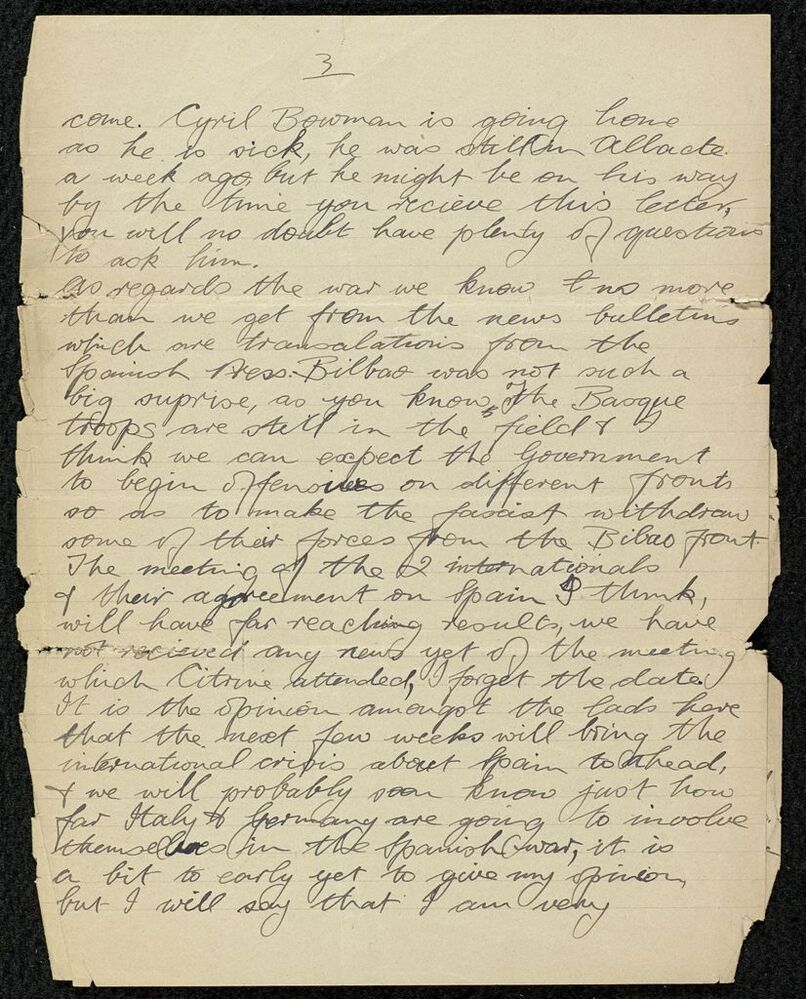 3
come. Cyril Bowman is going home
as he is sick, he was still in Albacte.
a week ago, but he might be on his way
by the time you recieve this letter,
you will no doubt have plenty of questions
to ask him.
As regards the war we know no more
than we get from the news bulletins
which are transalations from the
Spanish Press. Bilbao was not such a
big suprise, as you know, The Basque
troops are still in the field & I
think we can expect the Government
to begin offensives on different fronts
so as to make the fascist withdraw
some of their forces from the Bibao front.
The meeting of the 2 internationals
& their agreement on Spain I think,
will have far reaching results, we have
not recieved any news yet of the meeting
which Citrine attended, I forget the date.
It is the opinion amongst the lads here
that the next few weeks will bring the
international crisis about Spain to ahead,
& we will probably soon know just how
far Italy & Germany are going to involve
themselves in the Spanish war, it is
a bit to early yet to give my opinion,
but I will say that I am very